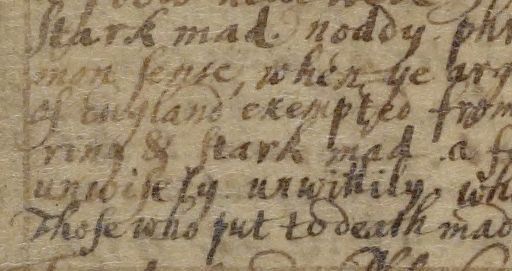 stark mad. noddy. phr
mon sense, when ye arg
of england exempted from
ring & stark mad a f
unwisely. unwittily. wh
Those who put to death mad